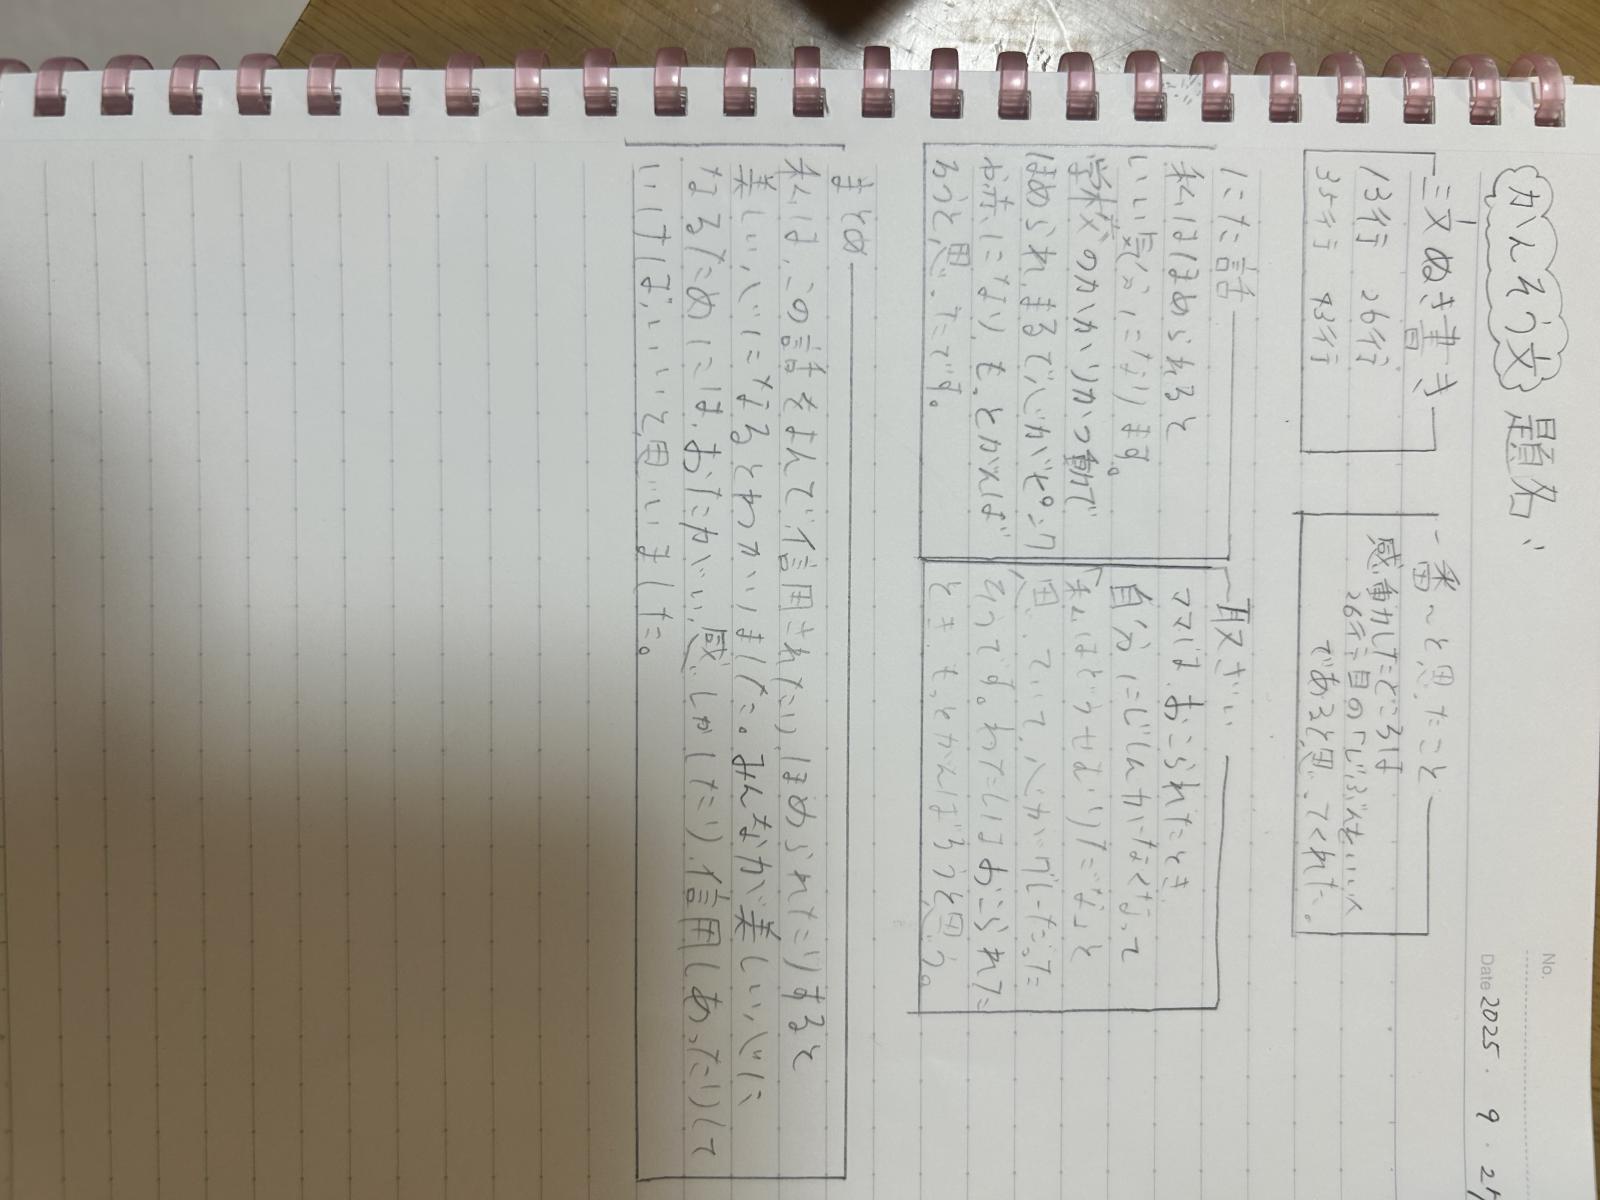 No.
Date 2025.9.21
かんそう文 題名、
三文ぬき書き
13行 26行
35行 43行
一番～と思ったこと
感動したところは
26行目の「じぶんをいい人
であると思ってくれた。
にた話
私はほめられると
いい気分になります。
学校のかかりかつ動で
ほめられ、まるで心がピンク
や赤になり、もっとがんば
ろうと思ったです。
取ざい
ママは、おこられたとき
自分にじしんがなくなって
「私はどうせむりだな」と
思っていて、心がグレーだった
そうです。わたしはおこられた
ときもっとがんばろうと思う。
まとめ
私は、この話をよんで信用されたり、ほめられたりすると
美しい心になるとわかりました。みんなが美しい心に
なるためには、おたがい、感しゃしたり、信用しあったりして
いけばいいと思いました。